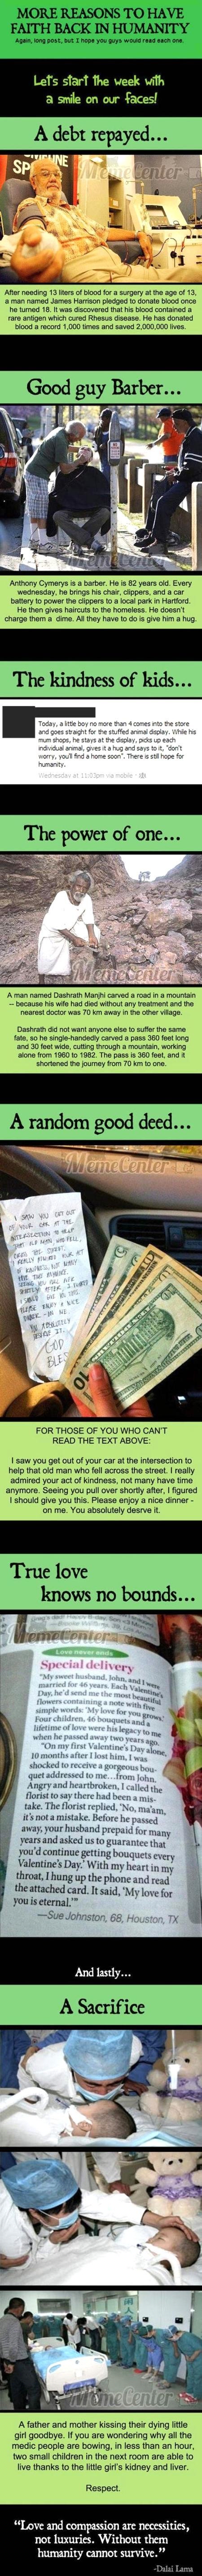 MORE REASONS TO HAVE
FAITH BACK IN HUMANITY
Again, long post, but I hope you guys would read each one.
Let's start the week with
a smile on our faces!
A debt repayed...
MemeCenter
After needing 13 liters of blood for a surgery at the age of 13,
a man named James Harrison pledged to donate blood once
he turned 18. It was discovered that his blood contained a
rare antigen which cured Rhesus disease. He has donated
blood a record 1,000 times and saved 2,000,000 lives.
Good guy Barber...
MemeCenter
Anthony Cymerys is a barber. He is 82 years old. Every
wednesday, he brings his chair, clippers, and a car
battery to power the clippers to a local park in Hartford.
He then gives haircuts to the homeless. He doesn't
charge them a dime. All they have to do is give him a hug.
The kindness of kids...
Today, a little boy no more than 4 comes into the store
and goes straight for the stuffed animal display. While his
mum shops, he stays at the display, picks up each
individual animal, gives it a hug and says to it, "don't
worry, you'll find a home soon". There is still hope for
humanity.
Wednesday at 11:03pm via mobile
The power of one...
MemeCenter
A man named Dashrath Manjhi carved a road in a mountain
– because his wife had died without any treatment and the
nearest doctor was 70 km away in the other village.
Dashrath did not want anyone else to suffer the same
fate, so he single-handedly carved a pass 360 feet long
and 30 feet wide, cutting through a mountain, working
alone from 1960 to 1982. The pass is 360 feet, and it
shortened the journey from 70 km to one.
A random good deed...
MemeCenter
I SAW YOU GET OUT
OF YOUR CAR AT THE
INTERSECTION
GOD
FOR THOSE OF YOU WHO CAN'T
READ THE TEXT ABOVE:
I saw you get out of your car at the intersection to
help that old man who fell across the street. I really
admired your act of kindness, not many have time
anymore. Seeing you pull over shortly after, I figured
I should give you this. Please enjoy a nice dinner -
on me. You absolutely desrve it.
True love
knows no bounds...
MemeCenter
Love never ends
Special delivery
"My sweet husband, John, and I were
married for 46 years. Each Valentine's
Day, he'd send me the most beautiful
flowers containing a note with five
simple words: 'My love for you grows.'
Four children, 46 bouquets and a
lifetime of love were his legacy to me
when he passed away two years ago.
"On my first Valentine's Day alone,
10 months after I lost him, I was
shocked to receive a gorgeous bou-
quet addressed to me...from John.
Angry and heartbroken, I called the
florist to say there had been a mis-
take. The florist replied, 'No, ma'am,
it's not a mistake. Before he passed
away, your husband prepaid for many
years and asked us to guarantee that
you'd continue getting bouquets every
Valentine's Day.' With my heart in my
throat, I hung up the phone and read
the attached card. It said, 'My love for
you is eternal.'"
—Sue Johnston, 68, Houston, TX
And lastly...
A Sacrifice
MemeCenter
A father and mother kissing their dying little
girl goodbye. If you are wondering why all the
medic people are bowing, in less than an hour,
two small children in the next room are able to
live thanks to the little girl's kidney and liver.
Respect.
"Love and compassion are necessities,
not luxuries. Without them
humanity cannot survive."
-Dalai Lama